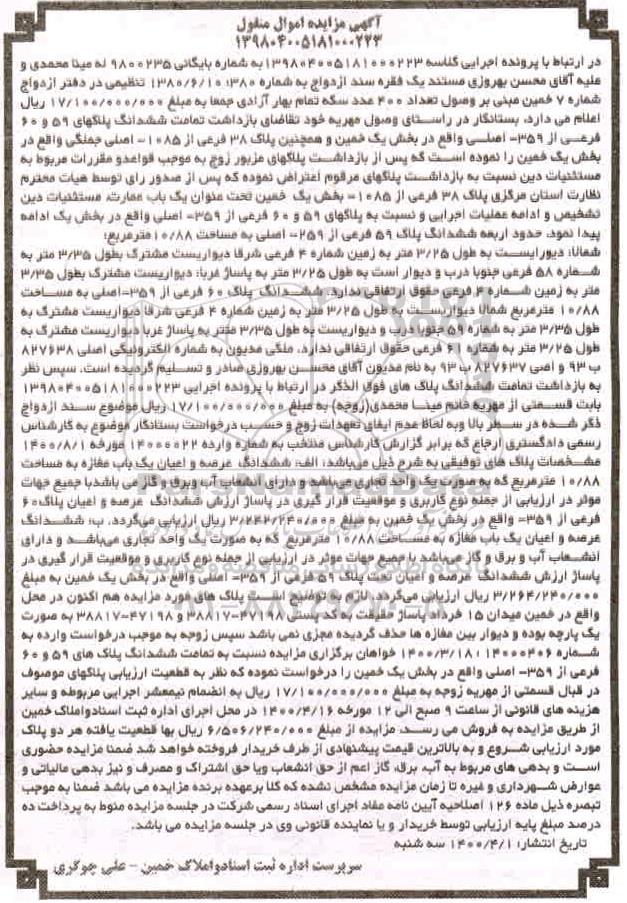 آگهی مزایده اموال منقول
۱۳۹۸۰۴۰۰۵۱۸۱۰۰۰۲۲۳
در ارتباط با پرونده اجرایی کلاسه ۱۳۹۸۰۴۰۰۵۱۸۱۰۰۰۲۲۳ به شماره بایگانی ۹۸۰۰۲۳۵ له مینا محمدی و
علیه آقای محسن بهروزی مستند یک فقره سند ازدواج به شماره ۳۸۰: ۱۳۸۰/۶/۱۰ تنظیمی در دفتر ازدواج
شماره ۷ خمین مبنی بر وصول تعداد ۴۰۰ عدد سکه تمام بهار آزادی جمعا به مبلغ ۱۷/۱۰۰/۰۰۰/۰۰۰ ریال
اعلام می دارد، بستانکار در راستای وصول مهریه خود تقاضای بازداشت تمامت ششدانگ پلاکهای ۵۹ و ۶۰
فرعی از ۳۵۹- اصلی واقع در بخش یک خمین و همچنین پلاک ۳۸ فرعی از ۱۰۸۵- اصلی جمگی واقع در
بخش یک خمین را نموده است که پس از بازداشت پلاکهای مزبور زوج به موجب قواعدو مقررات مربوط به
مستثنیات دین نسبت به بازداشت پلاکهای مرقوم اعتراض نموده که پس از صدور رای توسط هیات محترم
نظارت استان مرکزی پلاک ۳۸ فرعی از ۱۰۸۵- بخش یک خمین تحت عنوان یک باب عمارت، مستثنیات دین
تشخیص و ادامه عملیات اجرایی و نسبت به پلاکهای ۵۹ و ۶۰ فرعی از ۳۵۹- اصلی واقع در بخش یک ادامه
پیدا نمود. حدود اربعه ششدانگ پلاک ۵۹ فرعی از ۲۵۹- اصلی به مساحت ۱۰/۸۸ مترمربع:
شمالا: دیواریست به طول ۳/۲۵ متر به زمین شماره ۴ فرعی شرقا دیواریست مشترک بطول ۳/۳۵ متر به
شماره ۵۸ فرعی جنوبا درب و دیوار است به طول ۳/۲۵ متر به پاساژ غربا: دیواریست مشترک بطول ۳/۳۵
متر به زمین شماره ۴ فرعی حقوق ارتفاقی ندارد. ششدانگ پلاک ۶۰ فرعی از ۳۵۹-اصلی به مساحت
۱۰/۸۸ مترمربع شمالا دیواریست به طول ۳/۲۵ متر به زمین شماره ۴ فرعی شرقا دیواریست مشترک به
طول ۳/۳۵ متر به شماره ۵۹ جنوبا درب و دیواریست به طول ۳/۳۵ متر به پاساژ غربا دیواریست مشترک به
طول ۳/۲۵ متر به شماره ۶۱ فرعی حقوق ارتفاقی ندارد. ملکی مدیون به شماره الکترونیکی اصلی ۸۲۷۶۳۸
ب ۹۳ و اصی ۸۲۷۶۳۷ ب ۹۳ به نام مدیون آقای محسن بهروزی صادر و تسلیم گردیده است. سپس نظر
به بازداشت تمامت ششدانگ پلاک های فوق الذکر در ارتباط با پرونده اجرایی ۱۳۹۸۰۴۰۰۵۱۸۱۰۰۰۲۲۳
بابت قسمتی از مهریه خانم مینا محمدی(زوجه) به مبلغ ۱۷/۱۰۰/۰۰۰/۰۰۰ ریال موضوع سند ازدواج
ذکر شده در سطر بالا وبه لحاظ عدم ایفای تعهدات زوج و حسب درخواست بستانکار موضوع به کارشناس
رسمی دادگستری ارجاع که برابر گزارش کارشناس منتخب به شماره وارده ۱۴۰۰۰۰۲۲ مورخه ۱۴۰۰/۸/۱
مشخصات پلاک های توقیفی به شرح ذیل می‌باشد، الف: ششدانگ عرصه و اعیان یک باب مغازه به مساحت
۱۰/۸۸ مترمربع که به صورت یک واحد تجاری می‌باشد و دارای انشعاب آب وبرق و گاز می باشد با جمیع جهات
موثر در ارزیابی از جمله نوع کاربری و موقعیت قرار گیری در پاساژ ارزش ششدانگ عرصه و اعیان پلاک ۶۰
فرعی از ۳۵۹- واقع در بخش یک خمین به مبلغ ۳/۲۴۲/۲۴۰/۰۰۰ ریال ارزیابی می‌گردد. ب: ششدانگ
عرصه و اعیان یک باب مغازه به مساحت ۱۰/۸۸ مترمربع که به صورت یک واحد تجاری می‌باشد و دارای
انشعاب آب و برق و گاز می‌باشد با جمیع جهات موثر در ارزیابی از جمله نوع کاربری و موقعیت قرار گیری در
پاساژ ارزش ششدانگ عرصه و اعیان تحت پلاک ۵۹ فرعی از ۳۵۹- اصلی واقع در بخش یک خمین به مبلغ
۳/۲۶۴/۲۴۰/۰۰۰ ریال ارزیابی می‌گردد. لازم به توضیح است پلاک های مورد مزایده هم اکنون در محل
واقع در خمین میدان ۱۵ خرداد پاساژ حقیقت به کدپستی ۴۷۱۹۸-۳۸۸۱۷ و ۴۷۱۹۸-۳۸۸۱۷ به صورت
یک پارچه بوده و دیوار بین مغازه ها حذف گردیده مجزی نمی باشد سپس زوجه به موجب درخواست وارده به
شماره ۱۴۰۰۰۴۰۶: ۱۴۰۰/۳/۱۸ خواهان برگزاری مزایده نسبت به تمامت ششدانگ پلاک های ۵۹ و ۶۰
فرعی از ۳۵۹- اصلی واقع در بخش یک خمین را درخواست نموده که نظر به قطعیت ارزیابی پلاکهای موصوف
در قبال قسمتی از مهریه زوجه به مبلغ ۱۷/۱۰۰/۰۰۰/۰۰۰ ریال به انضمام نیمعشر اجرایی مربوطه و سایر
هزینه های قانونی از ساعت ۹ صبح الی ۱۲ مورخه ۱۴۰۰/۴/۱۶ در محل اجرای اداره ثبت اسنادواملاک خمین
از طریق مزایده به فروش می رسد، مزایده از مبلغ ۶/۵۰۶/۲۴۰/۰۰۰ ریال بها قطعیت یافته هر دو پلاک
مورد ارزیابی شروع و به بالاترین قیمت پیشنهادی از طرف خریدار فروخته خواهد شد ضمنا مزایده حضوری
است و بدهی های مربوط به آب، برق، گاز اعم از حق انشعاب ویا حق اشتراک و مصرف و نیز بدهی مالیاتی و
عوارض شهرداری و غیره تا زمان مزایده مشخص نشده که کلا برعهده برنده مزایده می باشد ضمنا به موجب
تبصره ذیل ماده ۱۲۶ اصلاحیه آیین نامه مفاد اجرای اسناد رسمی شرکت در جلسه مزایده منوط به پرداخت ده
درصد مبلغ پایه ارزیابی توسط خریدار و یا نماینده قانونی وی در جلسه مزایده می باشد.
تاریخ انتشار: ۱۴۰۰/۴/۱ سه شنبه
سرپرست اداره ثبت اسنادواملاک خمین - علی چوگری